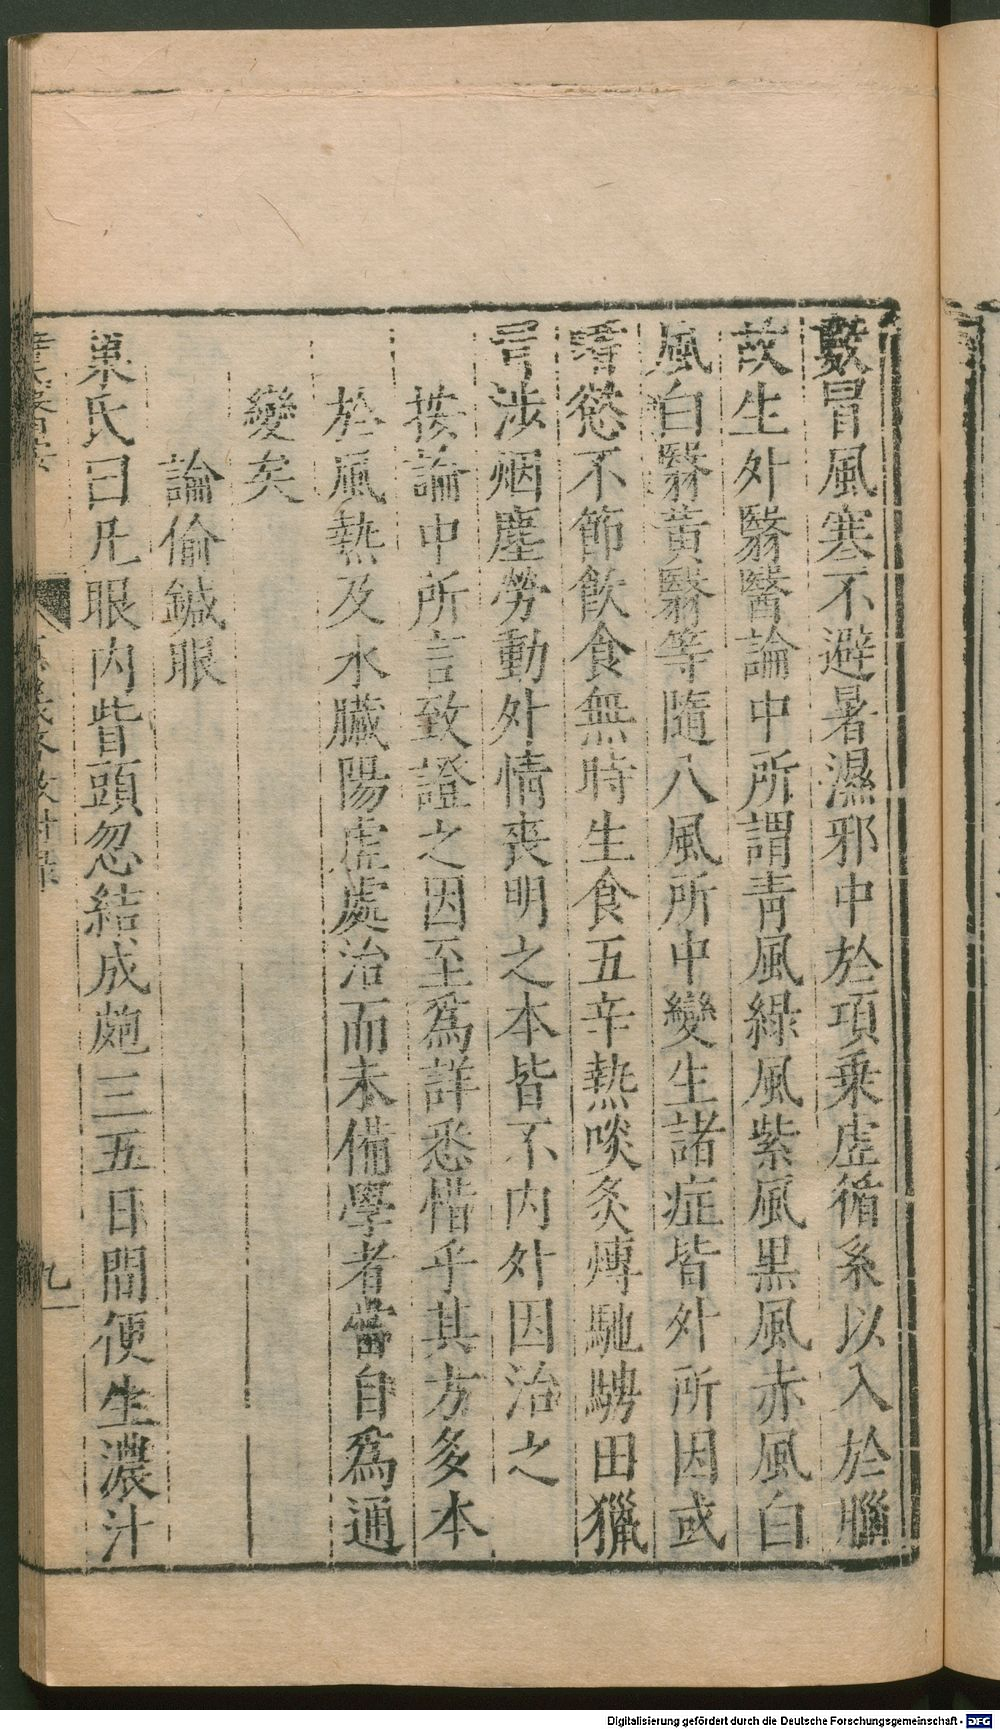 數冒風寒不避暑濕邪中於項乗虚循系以入於腦
故生外翳醫論中所謂青風綠風紫風黒風赤風白
風白翳黃翳等隨八風所中變生諸症皆外所因或
嗜慾不節飲食無時生食五辛熱啖炙煿馳騁田獵
冒涉烟塵勞動外情丧明之本皆不内外因治之
按論中所言致證之因至爲詳悉惜乎其方多本
於風熱及水臟陽虚處治而未備學者當自爲通
變矣
論偷鍼眼
巢氏曰凡眼内眥頭忽結成皰三五日間便生濃汁
九
Digitalisierung gefördert durch die Deutsche Forschungsgemeinschaft - DFG